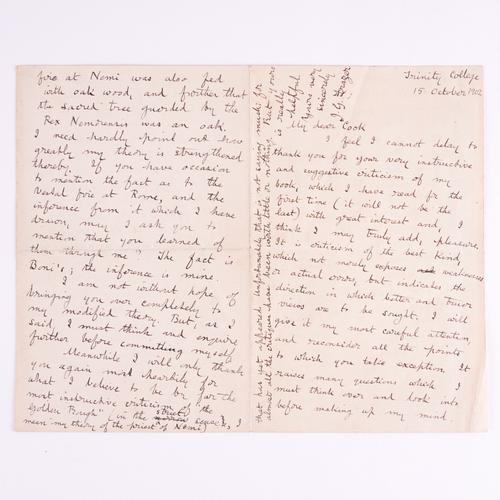 Trinity College
15 October 1902
My dear Cook
I feel I cannot delay to
thank you for your very instructive
and suggestive criticism of my
book, which I have read for the
first time (it will not be the
last) with great interest and, I
think I may truly add, pleasure.
It is criticism of the best kind,
which not merely exposes weaknesses
or actual errors, but indicates the
direction in which better and truer
views are to be sought. I will
give it my most careful attention,
and reconsider all the points
to which you take exception. It
raises many questions which I
must think over and look into
before making up my mind.
fire at Nemi was also fed
with oak wood, and further that
the sacred tree guarded by the
Rex Nemorensis was an oak.
I need hardly point out how
greatly my theory is strengthened
thereby. If you have occasion
to mention the fact as to the
Vestal fire at Rome, and the
inference from it which I have
drawn, may I ask you to
mention that you learned of
them through me? The fact is
Boni's; the inference is mine.
I am not without hope of
bringing you over completely to
my modified theory. But, as I
said, I must think and enquire
further before committing myself.
Meanwhile I will only thank
you again most heartily for
what I believe to be by far the
most instructive criticism of the
"Golden Bough" (in the strict sense, I
mean my theory of the priest of Nemi)
that has yet appeared. Unfortunately that is not saying much; for
almost all the criticisms have been worth little or nothing. But yours
is really
helpful
Yours very
sincerely
J. G. Frazer